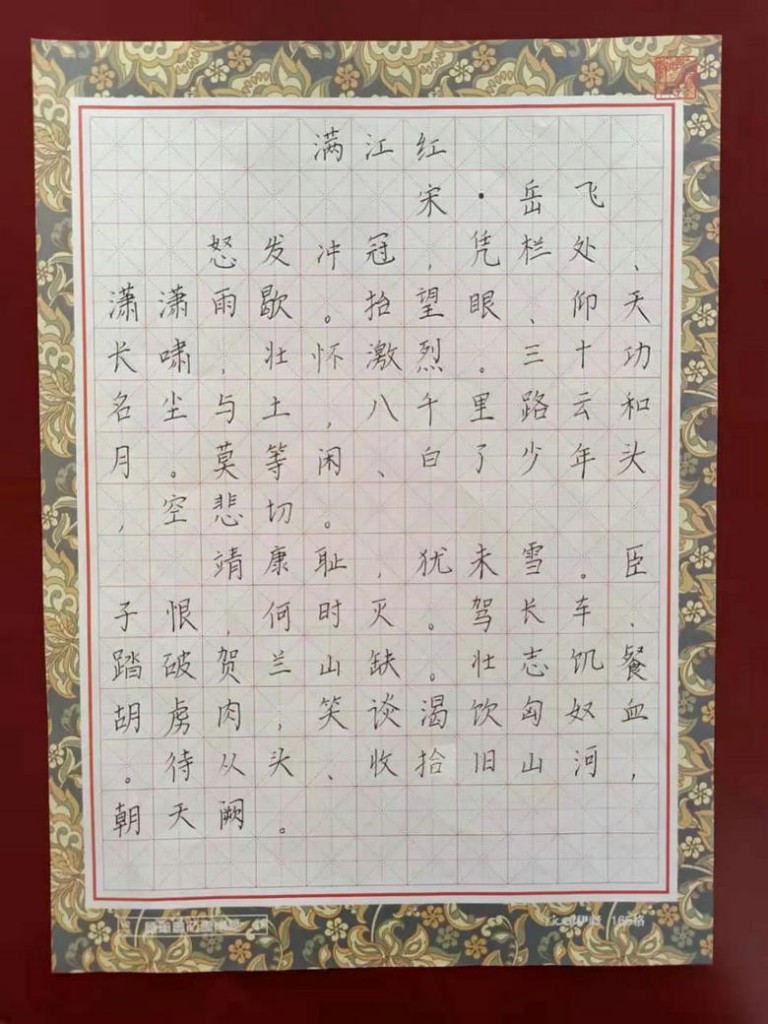 满江红
宋·岳飞
怒发冲冠，凭栏处、
潇潇雨歇。抬望眼、仰天
长啸，壮怀激烈。三十功
名尘与土，八千里路云和
月。莫等闲、白了少年头
，空悲切。
靖康耻，犹未雪。臣
子恨，何时灭。驾长车、
踏破贺兰山缺。壮志饥餐
胡虏肉，笑谈渴饮匈奴血
。待从头、收拾旧山河，
朝天阙。